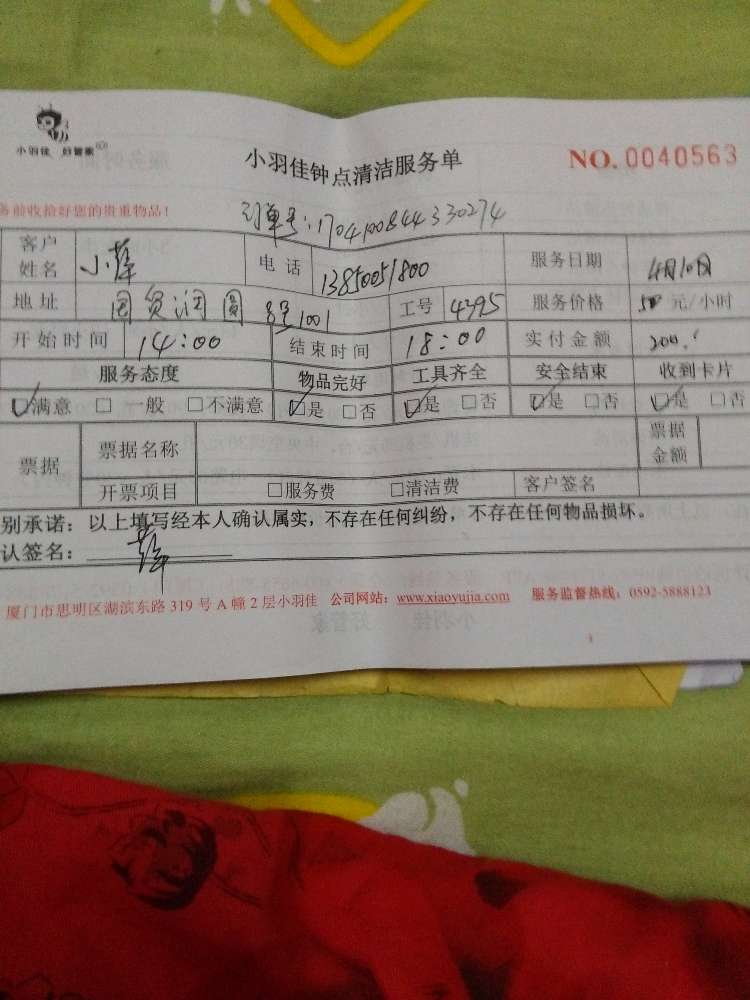 小羽佳 好管家
小羽佳钟点清洁服务单
NO. 0040563
务前收拾好您的贵重物品！
订单号：1704100844330274
客户姓名 小薛 电话 13850051800 服务日期 4月10日
地址 国贸润园 1001 工号 4395 服务价格 50 元/小时
开始时间 14:00 结束时间 18:00 实付金额 200.
服务态度 物品完好 工具齐全 安全结束 收到卡片
☑满意 □一般 □不满意 ☑是 □否 ☑是 □否 ☑是 □否 ☑是 □否
票据 票据名称 票据金额
开票项目 □服务费 □清洁费 客户签名
别承诺：以上填写经本人确认属实，不存在任何纠纷，不存在任何物品损坏。
认签名：薛
厦门市思明区湖滨东路 319 号 A 幢 2 层小羽佳 公司网站：www.xiaoyujia.com 服务监督热线：0592-5888123